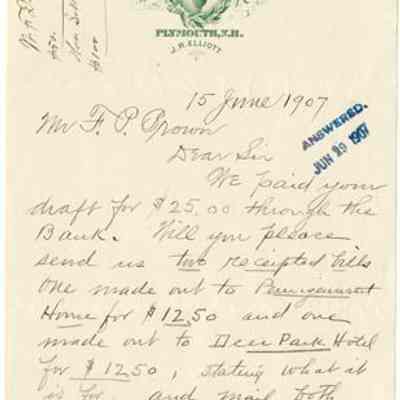 PLYMOUTH, N.H.
J. R. ELLIOTT
$100
15 June 1907
Mr F. P. Brown
ANSWERED.
JUN 29 1907
Dear Sir
We paid your
draft for $25.00 through the
Bank. Will you please
send us two receipted bills
One made out to Pemigewasset
Home for $12.50 and one
made out to Deer Park Hotel
for $12.50, stating what it
is for, and mail both